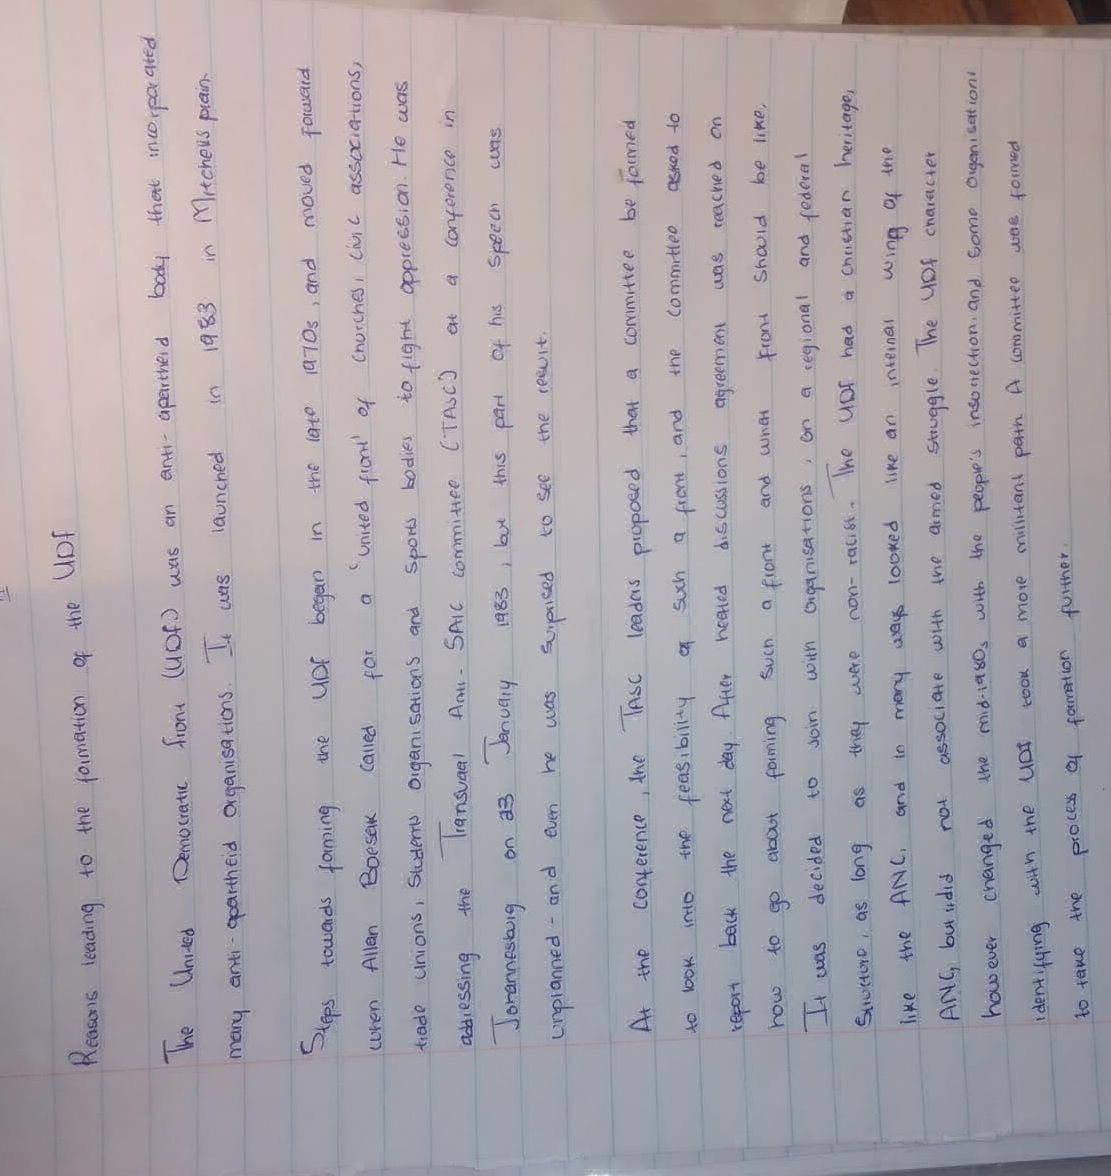 Reasons leading to the formation of the UDF
The United Democratic front (UDF) was an anti-apartheid body that incorporated
many anti-apartheid organisations. It was launched in 1983 in Mitchells plain.
Steps towards forming the UDF began in the late 1970s, and moved forward
when Allan Boesak called for a 'united front' of churches, civic associations,
trade unions, students organisations and sports bodies to fight oppression. He was
addressing the Transvaal Anti-SAIC committee (TASC) at a conference in
Johannesburg on 23 January 1983, but this part of his speech was
unplanned - and even he was surprised to see the result.
At the conference, the TASC leaders proposed that a committee be formed
to look into the feasibility of such a front, and the committee asked to
report back the next day. After heated discussions agreement was reached on
how to go about forming such a front and what front should be like.
It was decided to join with organisations, on a regional and federal
structure, as long as they were non-racist. The UDF had a christian heritage,
like the ANC, and in many ways looked like an internal wing of the
ANC, but did not associate with the armed struggle. The UDF character
however changed the mid-1980s with the people's insurrection. and some organisations
identifying with the UDF took a more militant path A committee was formed
to take the process of formation further.